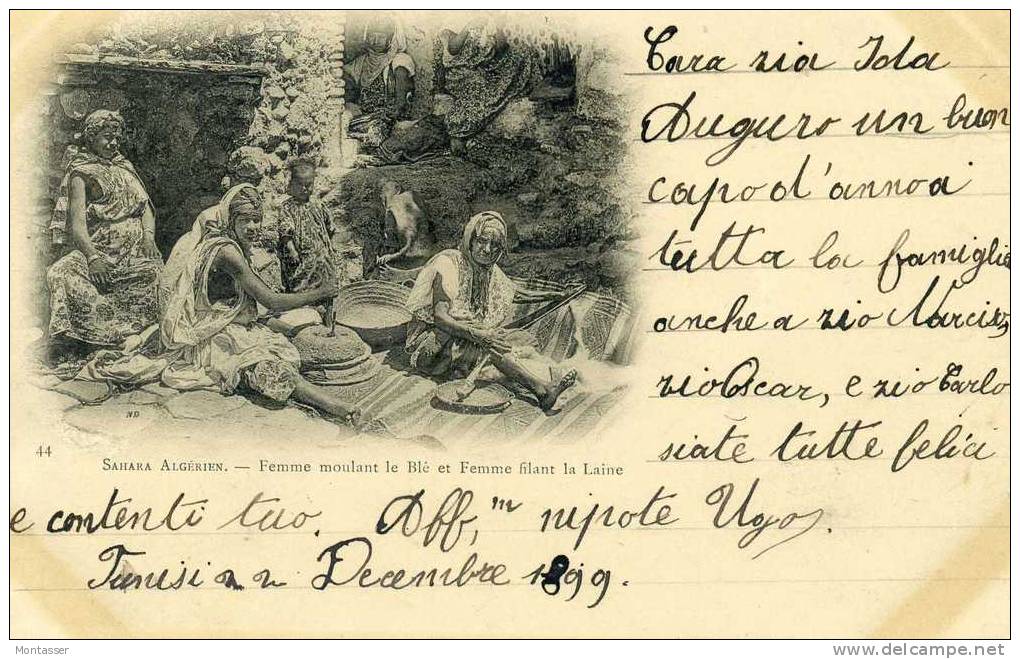 Cara zia Ida
Auguro un buon
capo d'anno a
tutta la famiglia
anche a zio Narciso,
zio Oscar, e zio Carlo
siate tutte felici
44
ND
SAHARA ALGÉRIEN. — Femme moulant le Blé et Femme filant la Laine
e contenti tuo. Aff,ᵐ nipote Ugo.
Tunisi 22 Decembre 1899.
Montasser
www.delcampe.net